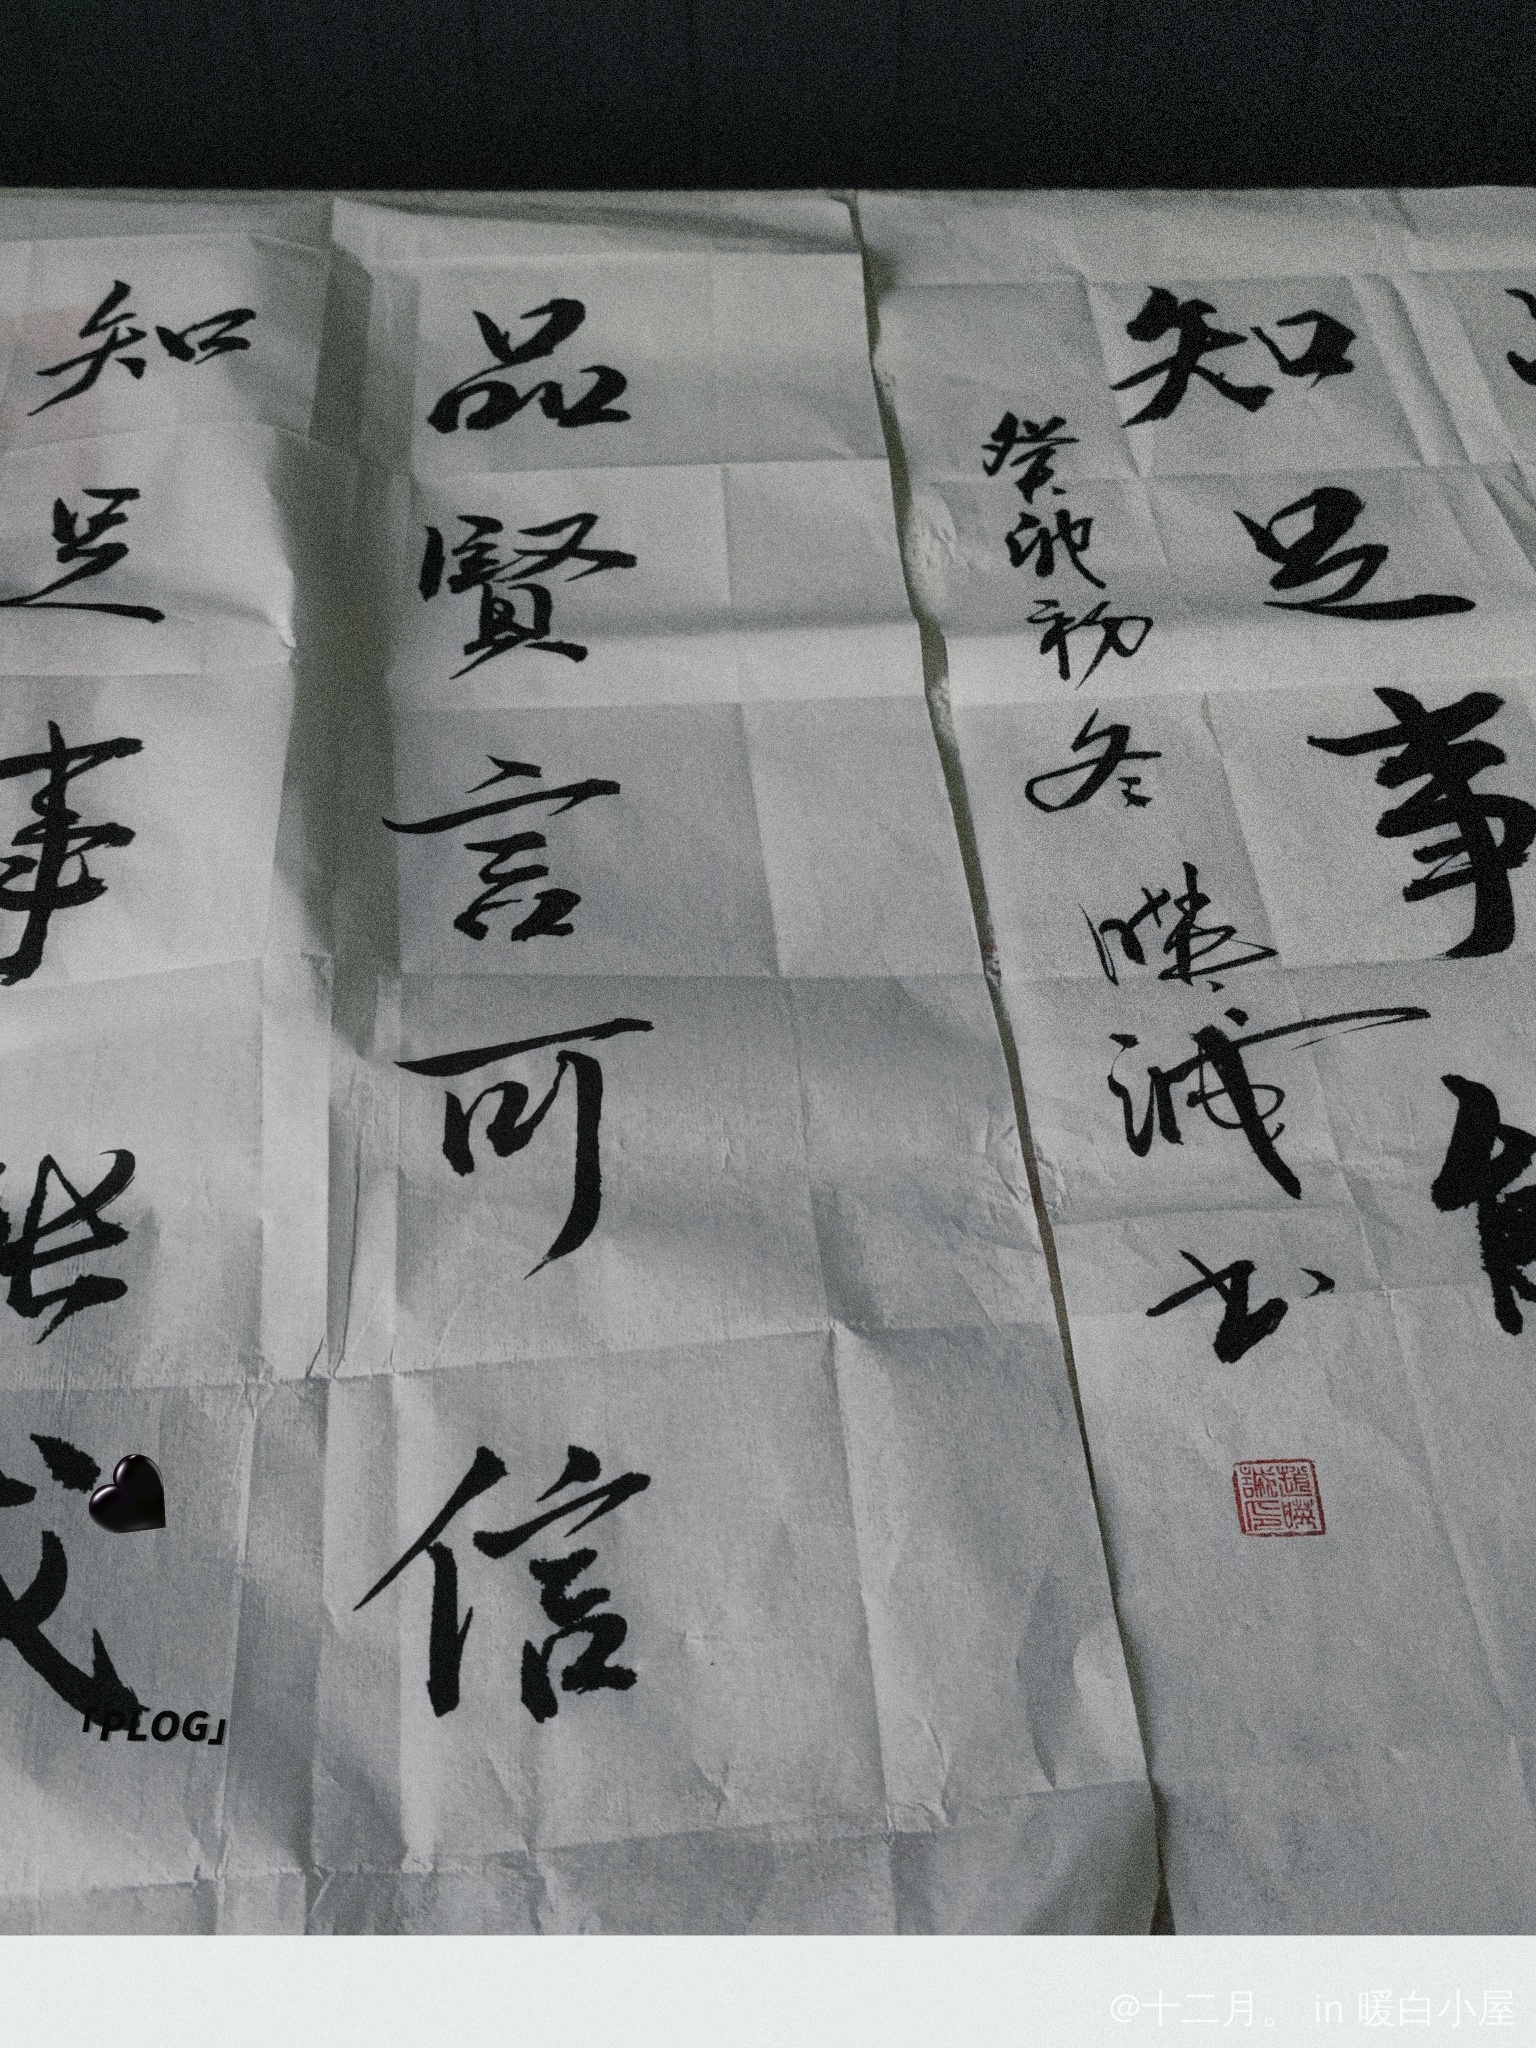 知足事能
癸卯初冬
诚书
品賢言可信
知足事能
「PLOG」
@十二月。 in 暖白小屋